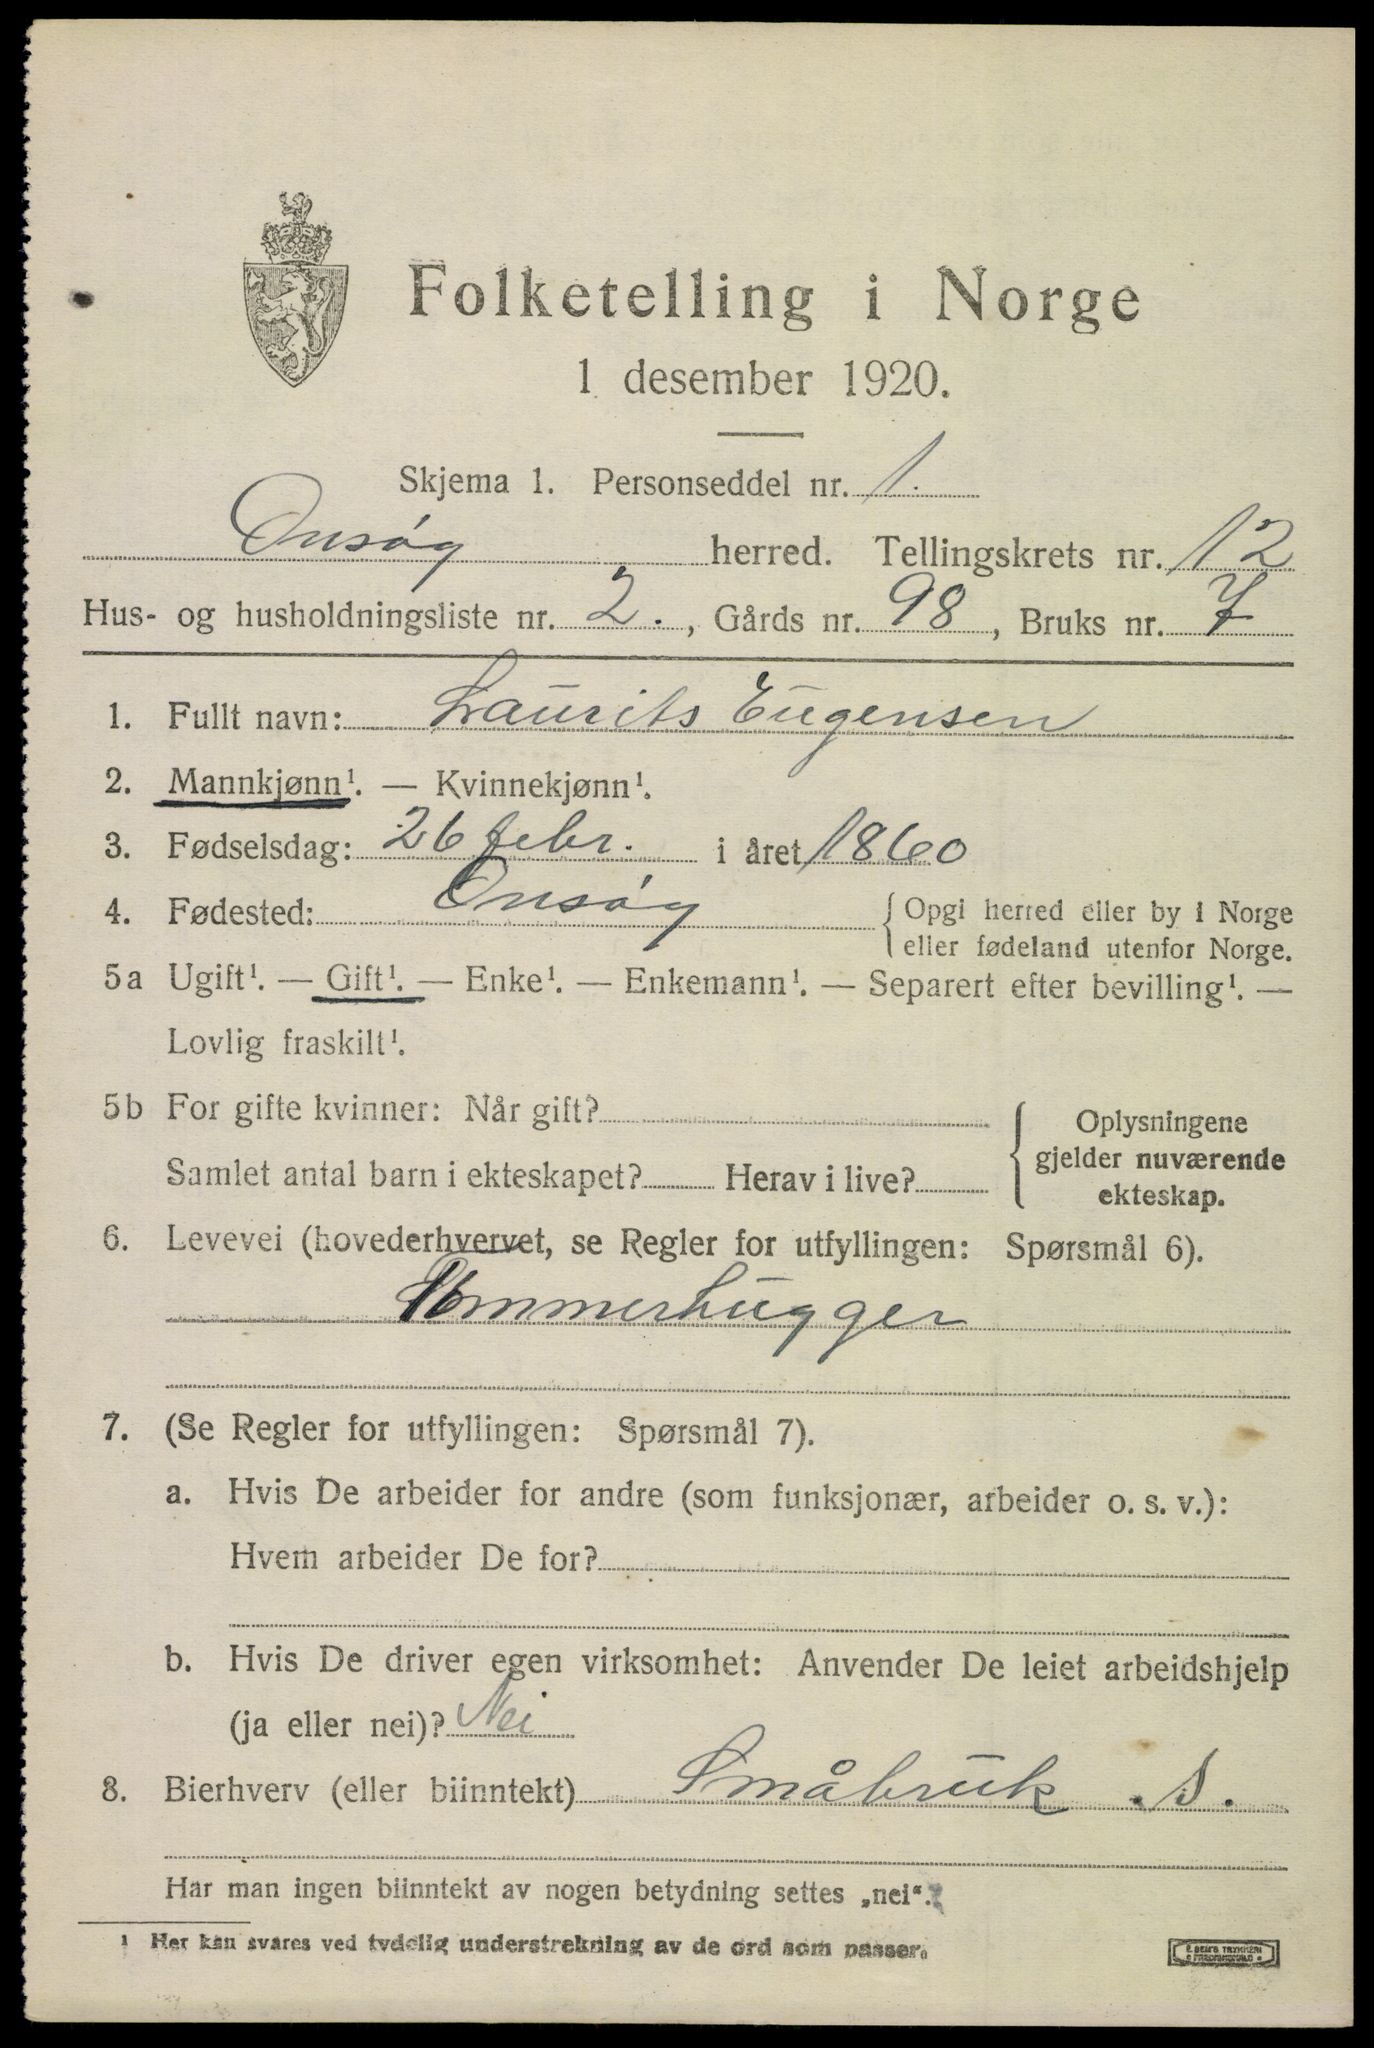 Folketelling i Norge
1 desember 1920.
Skjema 1. Personseddel nr. 1.
Onsøy herred. Tellingskrets nr. 12
Hus- og husholdningsliste nr. 2. , Gårds nr. 98 , Bruks nr. 7
1. Fullt navn: Laurits Eugensen
2. Mannkjønn¹. — Kvinnekjønn¹.
3. Fødselsdag: 26 febr. i året 1860
4. Fødested: Onsøy { Opgi herred eller by i Norge
eller fødeland utenfor Norge.
5a Ugift¹. — Gift¹. — Enke¹. — Enkemann¹. — Separert efter bevilling¹. —
Lovlig fraskilt¹.
5b For gifte kvinner: Når gift? { Oplysningene
gjelder nuværende
Samlet antal barn i ekteskapet? Herav i live? ekteskap.
6. Levevei (hovederhvervet, se Regler for utfyllingen: Spørsmål 6).
Tømmerhugger
7. (Se Regler for utfyllingen: Spørsmål 7).
a. Hvis De arbeider for andre (som funksjonær, arbeider o. s. v.):
Hvem arbeider De for?
b. Hvis De driver egen virksomhet: Anvender De leiet arbeidshjelp
(ja eller nei)? Nei
8. Bierhverv (eller biinntekt) Småbruk . S.
Har man ingen biinntekt av nogen betydning settes „nei“.
¹ Her kan svares ved tydelig understrekning av de ord som passer.